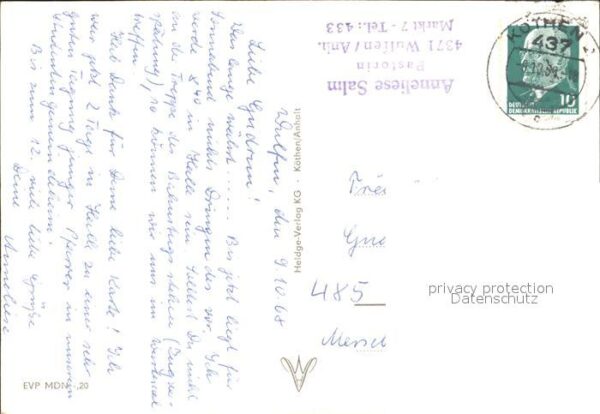 Wulfen, den 9.10.68
Liebe Gudrun!
Was lange währt...... Bis jetzt liegt für
Sonnabend nichts Dringendes vor. Ich
werde 8.40 in Halle sein. Solltest Du nicht
an der Treppe des Bahnsteigs stehen (Zugver-
spätung), so können wir uns im Wartesaal
treffen.
Hab Dank für Deine liebe Karte! Ich
war jetzt 2 Tage in Halle zu einer sehr
guten Tagung junger Pfarrer in unserem
Studentengemeindeheim!
Bis zum 12. viele liebe Grüße
Deine
Anneliese
Anneliese Salm
Pastorin
4371 Wulfen / Anh.
Markt 7 - Tel.: 433
KÖTHEN 2
437
DEUTSCHE
DEMOKRATISCHE REPUBLIK
10
Gud
485
privacy protection
Datenschutz
Heldge-Verlag KG · Köthen/Anhalt
EVP MDN -,20